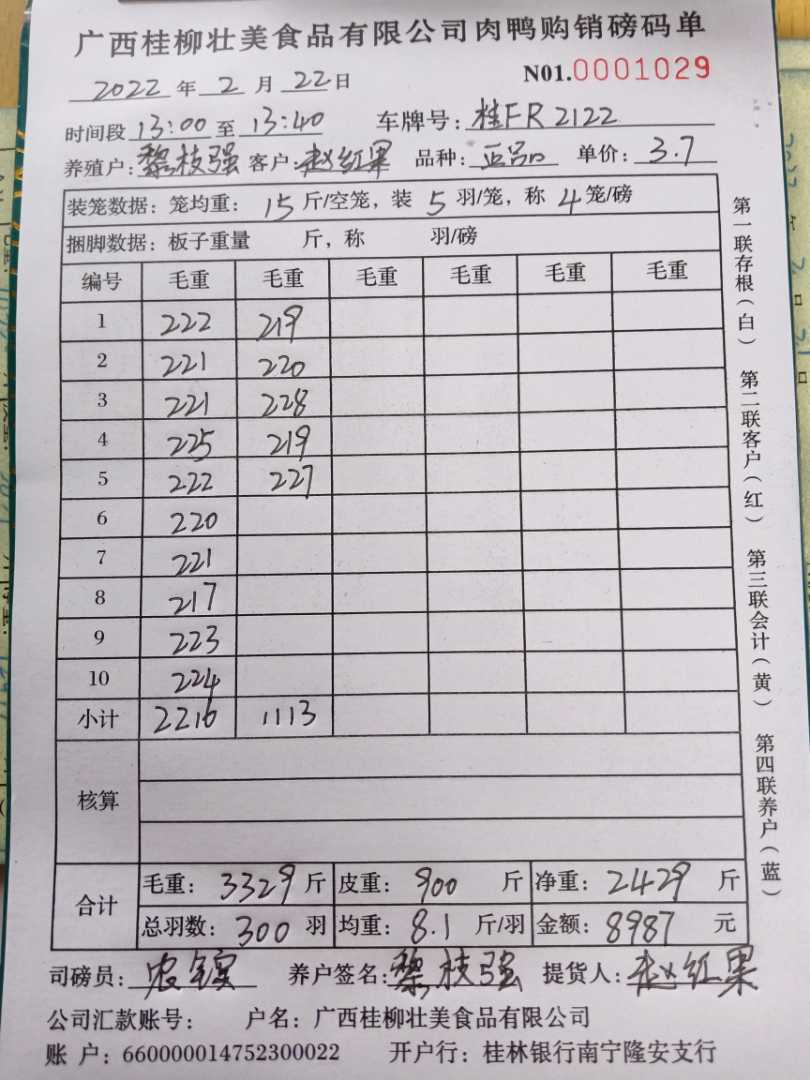 广西桂柳壮美食品有限公司肉鸭购销磅码单
2022年2月22日 N01.0001029
时间段13:00至13:40 车牌号:桂FR2122
养殖户:黎枝强 客户:赵红果 品种: 单价:3.7
装笼数据:笼均重:15斤/空笼,装5羽/笼,称4笼/磅
捆脚数据:板子重量 斤,称 羽/磅
编号 毛重 毛重 毛重 毛重 毛重 毛重
1 222 219
2 221 220
3 221 228
4 225 219
5 222 227
6 220
7 221
8 217
9 223
10 224
小计 2216 1113
核算
合计 毛重:3329斤 皮重:900斤 净重:2429斤
总羽数:300羽 均重:8.1斤/羽 金额:8987元
司磅员: 养户签名:黎枝强 提货人:赵红果
公司汇款账号: 户名:广西桂柳壮美食品有限公司
账 户:660000014752300022 开户行:桂林银行南宁隆安支行
第一联存根(白) 第二联客户(红) 第三联会计(黄) 第四联养户(蓝)